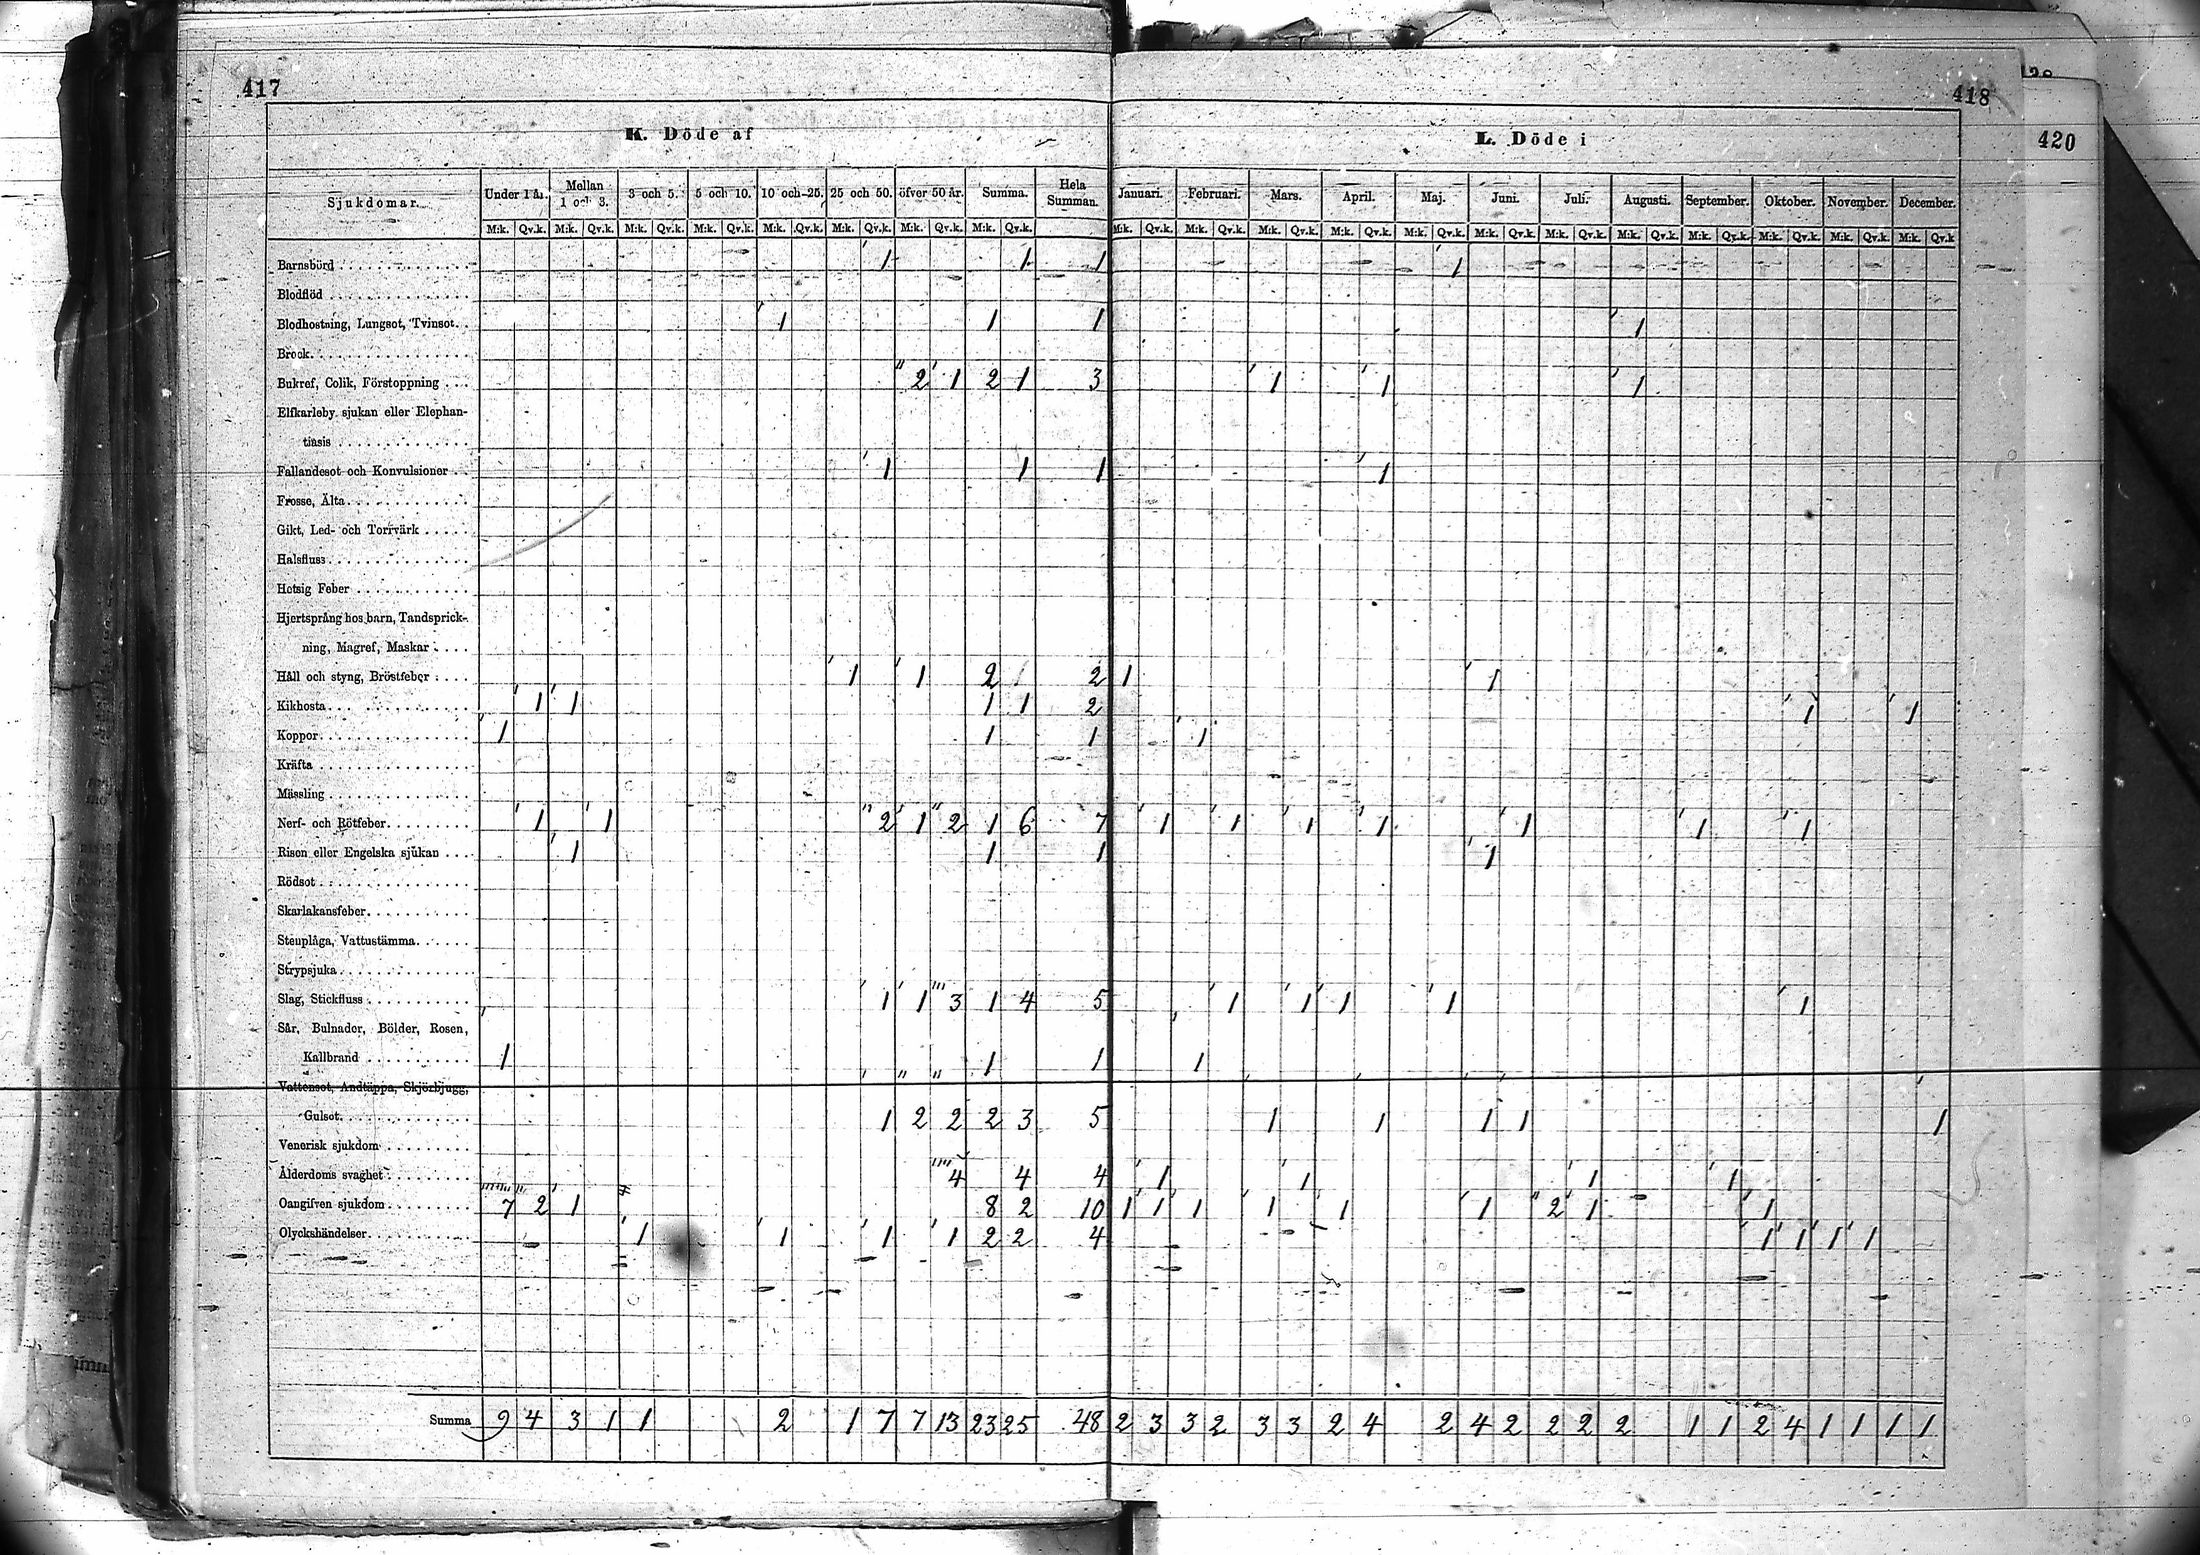 417
418
420
K. Döde af
L. Döde i
Sjukdomar. Under 1 år. Mellan 1 och 3. 3 och 5. 5 och 10. 10 och 25. 25 och 50. öfver 50 år. Summa. Hela Summan. Januari. Februari. Mars. April. Maj. Juni. Juli. Augusti. September. Oktober. November. December.
M:k. Qv.k. M:k. Qv.k. M:k. Qv.k. M:k. Qv.k. M:k. Qv.k. M:k. Qv.k. M:k. Qv.k. M:k. Qv.k. M:k. Qv.k. M:k. Qv.k. M:k. Qv.k. M:k. Qv.k. M:k. Qv.k. M:k. Qv.k. M:k. Qv.k. M:k. Qv.k. M:k. Qv.k. M:k. Qv.k. M:k. Qv.k. M:k. Qv.k
Barnsbörd 1 1 1 1
Blodflöd
Blodhostning, Lungsot, Tvinsot. 1 1 1 1
Brock.
Bukref, Colik, Förstoppning 2 1 2 1 3 1 1 1
Elfkarleby sjukan eller Elephan-
tiasis
Fallandesot och Konvulsioner 1 1 1 1
Frosse, Älta
Gikt, Led- och Torrvärk
Halsfluss
Hetsig Feber
Hjertsprång hos barn, Tandsprick-
ning, Magref, Maskar
Håll och styng, Bröstfeber 1 1 2 2 1 1
Kikhosta 1 1 1 1 2 1 1
Koppor 1 1 1 1
Kräfta
Mässling
Nerf- och Rötfeber 1 1 2 1 2 1 6 7 1 1 1 1 1 1 1
Risen eller Engelska sjukan 1 1 1 1
Rödsot
Skarlakansfeber
Stenplåga, Vattustämma
Strypsjuka
Slag, Stickfluss 1 1 3 1 4 5 1 1 1 1 1
Sår, Bulnader, Bölder, Rosen,
Kallbrand 1 1 1 1
Vattensot, Andtäppa, Skjörbjugg,
Gulsot. 1 2 2 2 3 5 1 1 1 1 1
Venerisk sjukdom
Ålderdoms svaghet 4 4 4 1 1 1 1
Oangifven sjukdom 7 2 1 8 2 10 1 1 1 1 1 1 2 1 1
Olyckshändelser 1 1 1 1 2 2 4 1 1 1 1
Summa 9 4 3 1 1 2 1 7 7 13 23 25 48 2 3 3 2 3 3 2 4 2 4 2 2 2 2 1 1 2 4 1 1 1 1